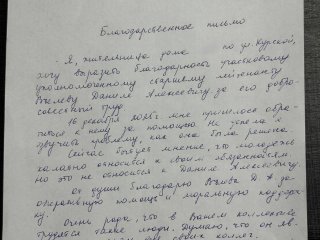 Благодарственное письмо
Я, жительница дома по ул. Курской,
хочу выразить благодарность участковому
уполномоченному старшему лейтенанту
Данилу Алексеевичу за его добро-
совестный труд.
16 декабря мне пришлось обра-
титься к нему за помощью. Не успела я
озвучить проблему, как она была решена.
Сейчас бытует мнение, что молодежь
халатно относится к своим обязанностям,
но это не относится к Данилу Алексеевичу.
От души благодарю Д. А. за
оперативную помощь и моральную поддерж-
ку.
Очень рада, что в Вашем коллективе
трудятся такие люди. Думаю, что он яв-
своих коллег.